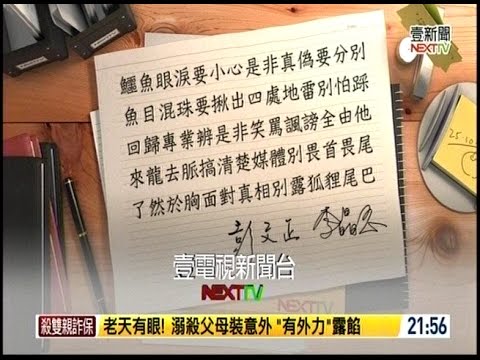 壹新聞
NEXTTV
鱷魚眼淚要小心是非真偽要分別
魚目混珠要揪出四處地雷別怕踩
回歸專業辨是非笑罵諷謗全由他
來龍去脈搞清楚媒體別畏首畏尾
了然於胸面對真相別露狐狸尾巴
彭文正 李晶玉
壹電視新聞台
NEXTTV
殺雙親詐保
老天有眼! 溺殺父母裝意外 "有外力"露餡
21:56